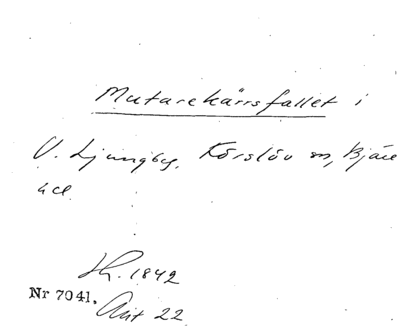 Mutarekärrsfallet i
V. Ljungby, Förslöv sn, Bjäre
hd.
Sk. 1842
Nr 7041. Avt 22